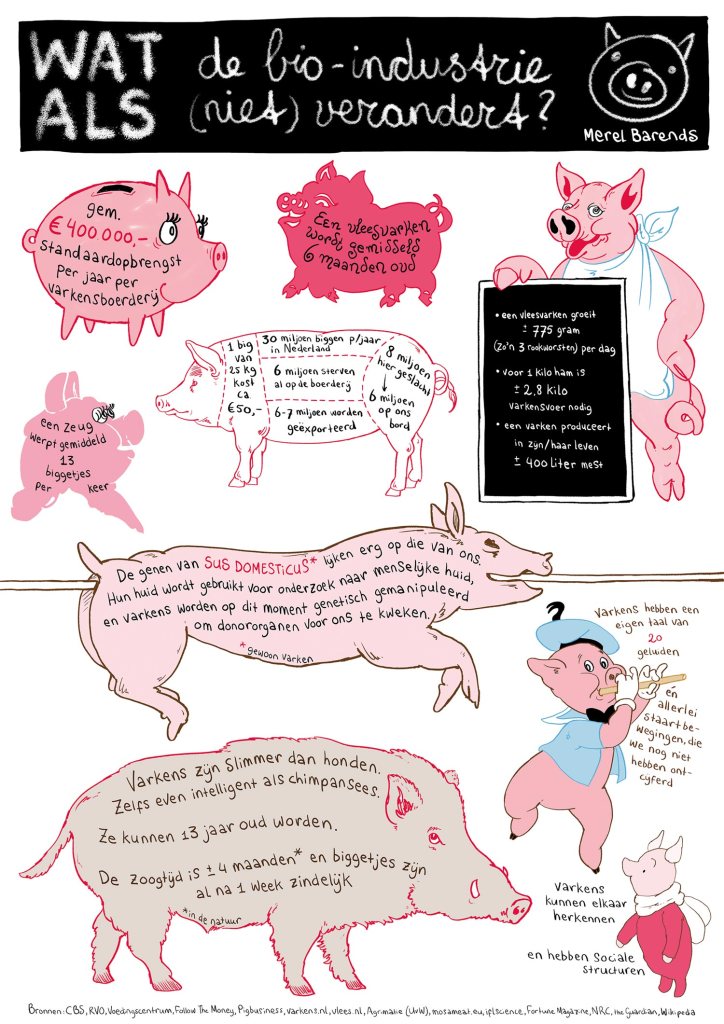 WAT
ALS
de bio-industrie
(niet) verandert?
Merel Barends
gem.
€ 400.000,-
Standaardopbrengst
per jaar per
varkensboerderij
Een vleesvarken
wordt gemiddeld
6 maanden oud
• een vleesvarken groeit
± 775 gram
(zo'n 3 rookworsten) per dag
• voor 1 kilo ham is
± 2,8 kilo
varkensvoer nodig
• een varken produceert
in zijn/haar leven
± 400 liter mest
1 big
van
25 kg
kost
ca.
€50,-
30 miljoen biggen p/jaar
in Nederland
6 miljoen sterven
al op de boerderij
6-7 miljoen worden
geëxporteerd
8 miljoen
hier geslacht
↓
6 miljoen
op ons
bord
een zeug
werpt gemiddeld
13
biggetjes
per keer
De genen van SUS DOMESTICUS* lijken erg op die van ons.
Hun huid wordt gebruikt voor onderzoek naar menselijke huid,
en varkens worden op dit moment genetisch gemanipuleerd
om donororganen voor ons te kweken.
*gewoon varken
Varkens hebben een
eigen taal van
20
geluiden
én
allerlei
staartbe-
wegingen, die
we nog niet
hebben ont-
cijferd
Varkens zijn slimmer dan honden.
Zelfs even intelligent als chimpansees.
Ze kunnen 13 jaar oud worden.
De zoogtijd is ± 4 maanden* en biggetjes zijn
al na 1 week zindelijk
*in de natuur
Varkens
kunnen elkaar
herkennen
en hebben Sociale
Structuren
Bronnen: CBS, RVO, Voedingscentrum, Follow The Money, Pigbusiness, varkens.nl, vlees.nl, Agrimatie (UvW), mosameat.eu, iflscience, Fortune Magazine, NRC, the Guardian, Wikipedia